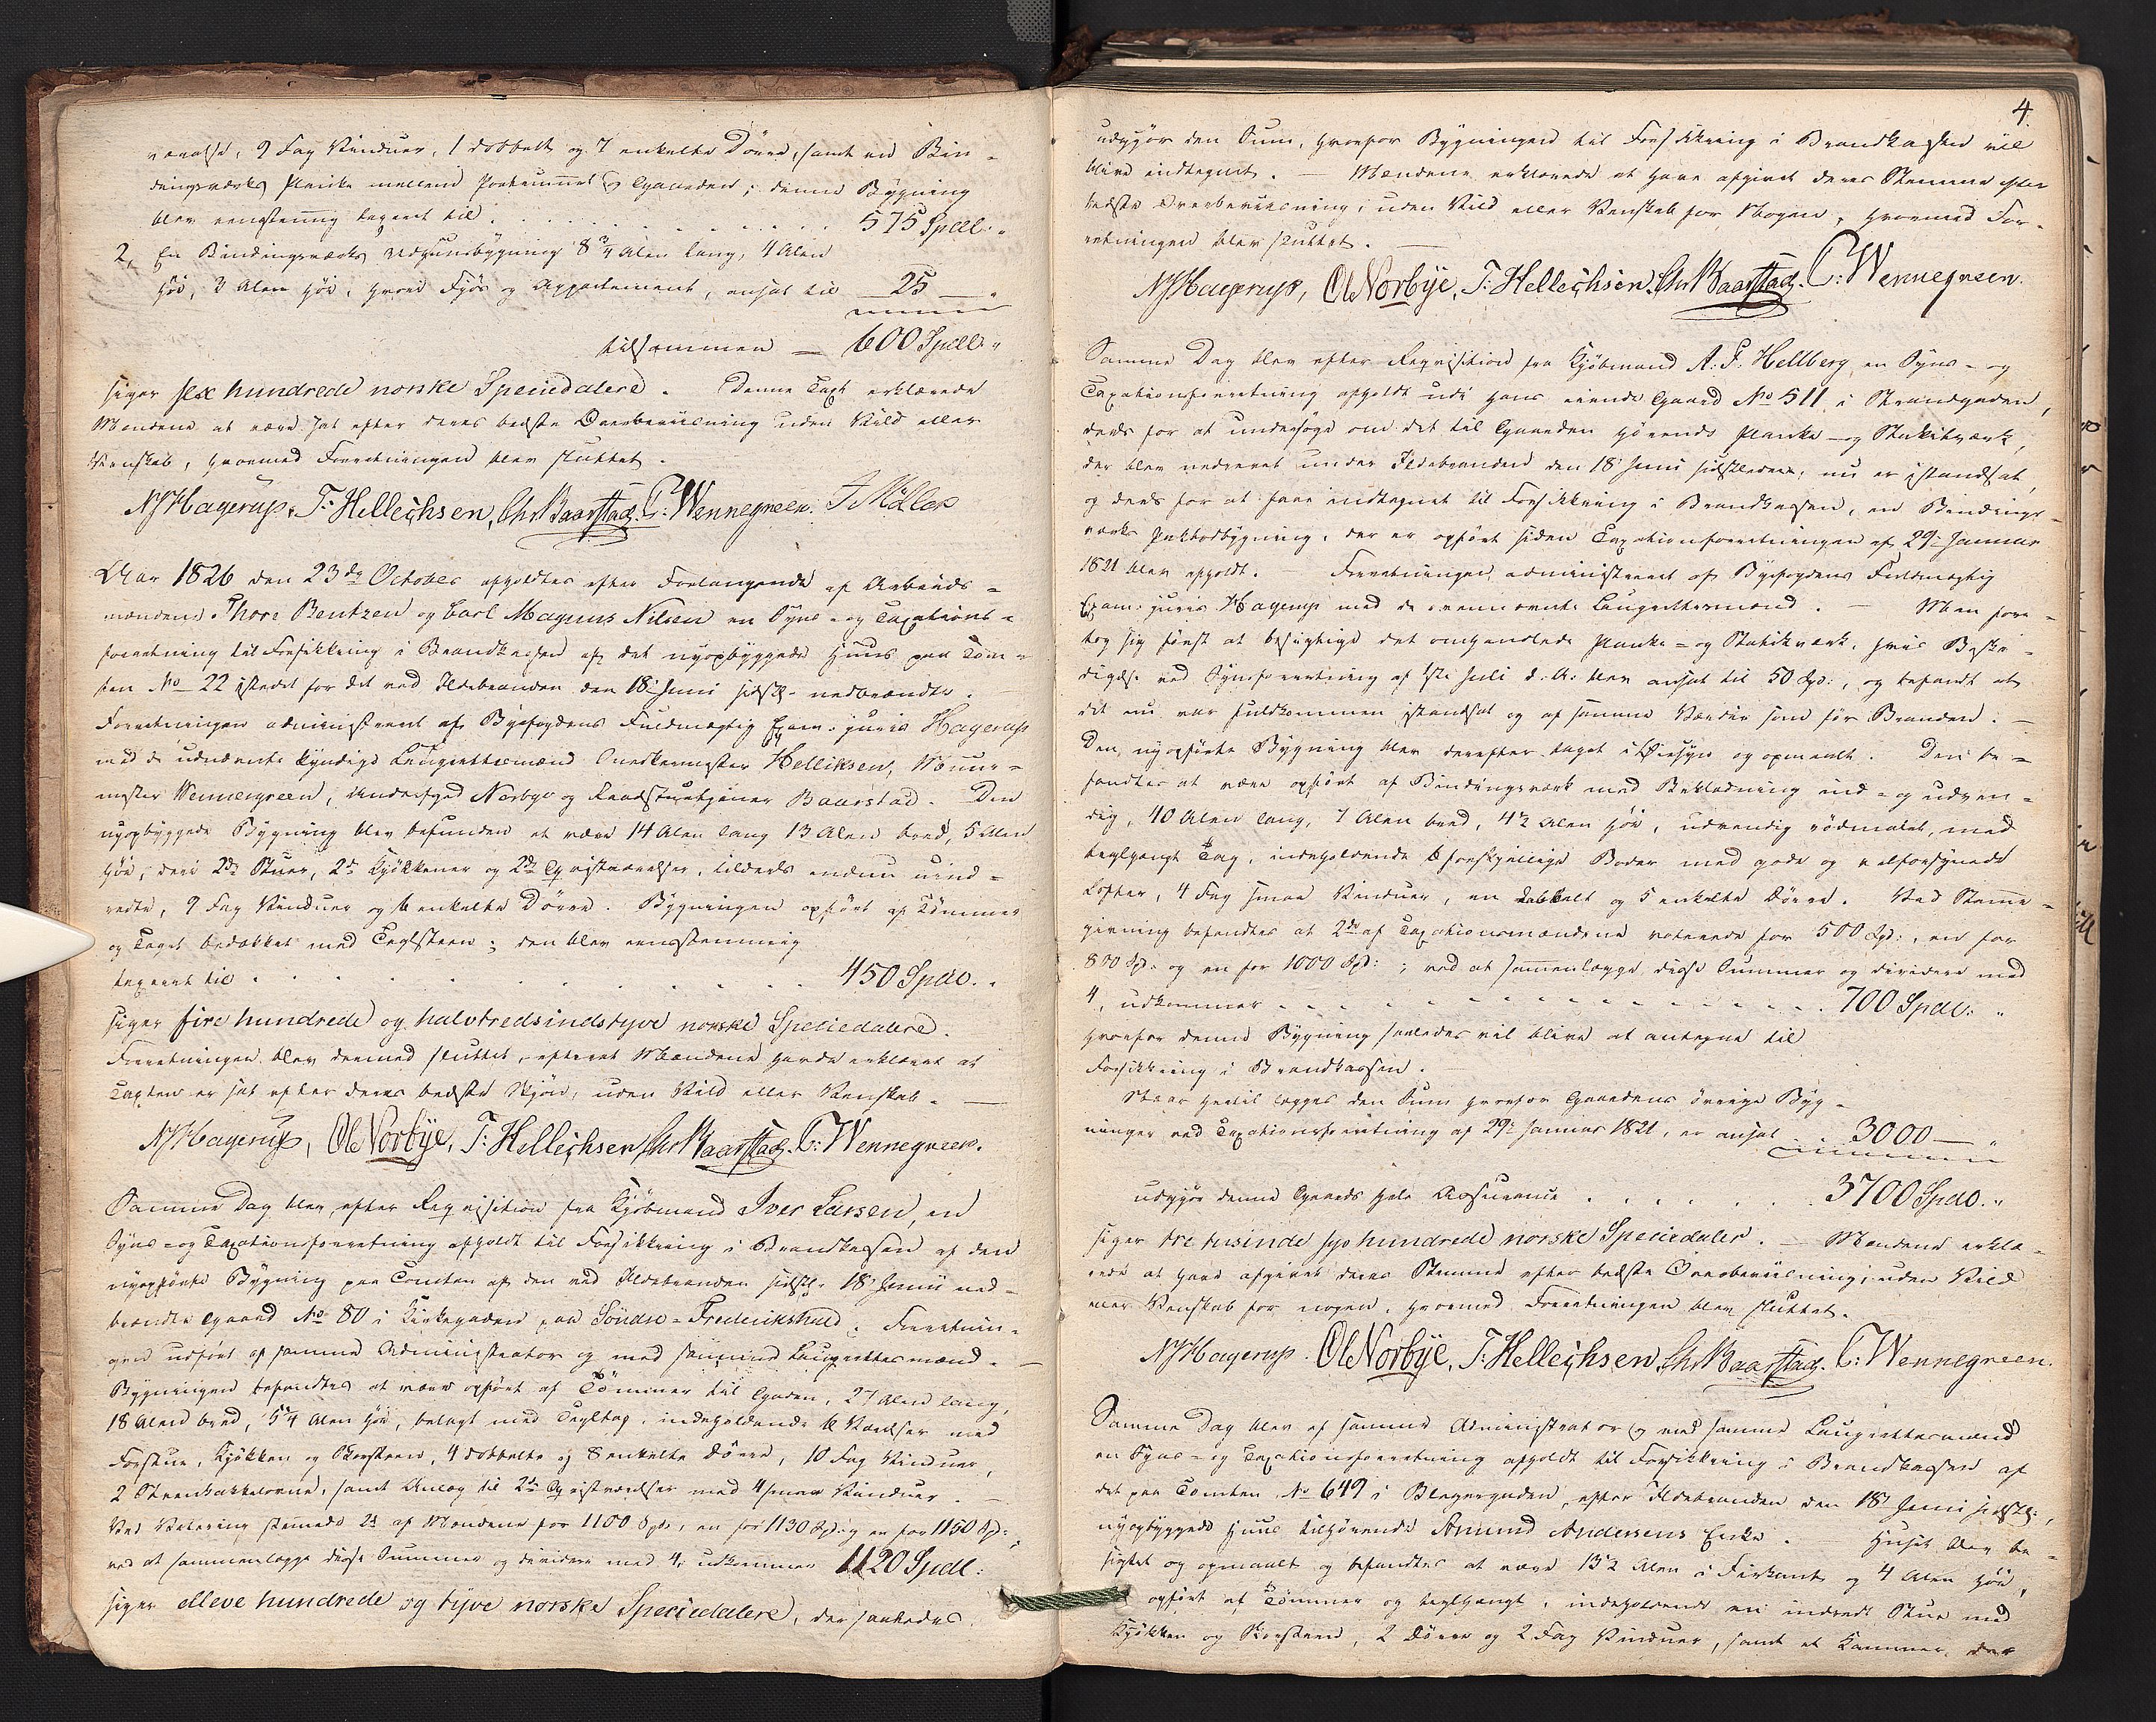 værelse, 9 Fag Vinduer, 1 dobbelt og 7 enkelte Dørre, samt en Bin-
dingsværks Planke mellem Portrummet og Gaarden; denne Bygning
blev eenstemmig taxeret til . . . . . . . . . . 575 Spdl: "
2, En Bindingsværks Udhuusbygning 8 3/4 Alen lang, 4 Alen
3 Alen høi, hvori Fjøs og Appartement, ansat til 25 — "
tilsammen — 600 Spdl: "
siger sex hundrede norske Speciedalere. Denne Taxt erklærede
Mændene at være sat efter deres bedste Overbeviisning uden Vild eller
Venskab, hvormed Forretningen blev sluttet.
NJHagerup. T: Hellechsen, Chr Baarstad. C: Wennegreen. J Møller
Aar 1826 den 23de October afholdtes efter Forlangende af Arbeids-
mændene Thore Bentzen og Carl Magnus Nilsen en Syns- og Taxations-
forretning til Forsikkring i Brandkassen af det nyopbyggede Huus paa Tom-
ten No 22 istedet for det ved Ildebranden den 18. Juni sidstl. nedbrændte.
Forretningen administreret af Byefogdens Fuldmægtig Exam: juris Hagerup
med de udnævnte kyndige Laugrettesmænd Snedkermester Helliksen, Muur-
mester Wennergreen, Norbye og Raadstuetjener Baarstad. Den
nyopbyggede Bygning blev befunden at være 14 Alen lang 13 Alen bred, 5 Alen
høi, deri 2de Stuer, 2de Kjøkkener og 2de Qvistværelser, tildeels endnu uind-
redte, 9 Fag Vinduer og 6 enkelte Dørre. Bygningen opført af Tømmer
og Taget bedækket med Teglsteen; den blev eenstemmig
taxeret til . . . . . . . . . . 450 Spdl. "
siger fire hundrede og halvtredsindstyve norske Speciedalere.
Forretningen blev dermed sluttet, efterat Mændene havde erklæret at
Taxten er sat efter deres bedste Skjøn, uden Vild eller Venskab. —
NJHagerup, Ol Norbÿe, T: Hellechsen, Chr Baarstad. C: Wennegreen.
Samme Dag blev, efter Reqvisition fra Kjøbmand Iver Larsen, en
Syns- og Taxationsforretning afholdt til Forsikkring i Brandkassen af den
nyopførte Bygning paa Tomten af den ved Ildebranden sidstl. 18. Junii ned-
brændte Gaard No 80 i Kirkegaden paa Søndre-Frederikshald. Forretnin-
gen udført af samme Administrator og med samme Laugrettesmænd. —
Bygningen befandtes at være opført af Tømmer til Gaden, 27 Alen lang,
18 Alen bred, 5 1/4 Alen høi, belagt med Tegltag, indeholdende 6 Værelser med
Forstue, Kjøkken og Skorsteen, 4 dobbelte og 8 enkelte Dørre, 10 Fag Vinduer,
2 samt Anlæg til 2de Qvistværelser med 4 smaa Vinduer. —
Ved Votering stemmede 2de af Mændene for 1100 Spd:, en for 1130 Spd: og en for 1150 Spd:;
ved at sammenlægge disse Summer og dividere med 4, udkommer 1120 Spdl:
siger elleve hundrede og tyve norske Speciedalere, der saaledes
4.
udgjør den Sum, hvorfor Bygningen til Forsikkring i Brandkassen vil
blive indtegnet. — Mændene erklærede at have afgivet deres Stemme efter
bedste Overbeviisning, uden Vild eller Venskab for Nogen, hvormed For-
retningen blev sluttet. —
NJHagerup, Ol Norbÿe, T: Hellechsen. Chr Baarstad. C: Wennegreen.
Samme Dag blev efter Reqvisition fra Kjøbmand A: F: Hellberg en Syns- og
Taxationsforretning afholdt udi hans eiende Gaard No 511 i Strandgaden,
deels for at undersøge om det til Gaarden hørende Planke- og Stakitværk,
der blev nedrevet under Ildebranden den 18. Juni sidstleden, nu er istandsat,
og deels for at faae indtegnet til Forsikkring i Brandkassen, en Bindings-
værks Pakbodbygning, der er opført siden Taxationsforretningen af 29. Januar
1821 blev afholdt. — Forretningen administreret af Byefogdens Fuldmægtig
Exam: juris Hagerup med de ovennævnte Laugrettesmænd. — Man fore-
tog sig først at besigtige det omhandlede Planke- og Stakitværk, hvis Beska-
digelse ved Synsforretning af 1ste Juli d: A: blev ansat til 50 Spd:, og befandt at
det nu var fuldkommen istandsat og af samme Værdie som før Branden. —
Den nyopførte Bygning blev derefter taget i Øiesyn og opmaalt. Den be-
fandtes at være opført af Bindingsværk med Beklædning ind- og udven-
dig, 40 Alen lang, 7 Alen bred, 4 1/2 Alen høi, udvendig rødmalet, med
teglhængt Tag, indeholdende 6 forskjellige Boder med gode og velforsynede
Lofter, 4 Fag smaa Vinduer, en dobbelt og 5 enkelte Dørre. Ved Stemme-
givning befandtes at 2de af Taxationsmændene voterede for 500 Spd:, en for
800 Spd: og en for 1000 Spd:; ved at sammenlægge disse Summer og dividere med
4, udkommer . . . . . . . . . . 700 Spdl: "
hvorfor denne Bygning saaledes vil blive at antegne til
Forsikkring i Brandkassen. —
Naar hertil lægges den Sum hvorfor Gaardens øvrige Byg-
ninger ved Taxationsforretning af 29. Januar 1821, er ansat . . 3000 — "
udgjør denne Gaards hele Assurance . . . . . . 3700 Spdl. "
siger tre tusinde syv hundrede norske Speciedaler. — Mændene erklæ-
rede at have afgivet deres Stemme efter bedste Overbeviisning, uden Vild
eller Venskab for nogen, hvormed Forretningen blev sluttet.
NJHagerup. Ol Norbÿe, T: Hellechsen, Chr Baarstad. C: Wennegreen.
Samme Dag blev af samme Administrator og med samme Laugrettesmænd
en Syns- og Taxationsforretning afholdt til Forsikkring i Brandkassen af
det paa Tomten No 649 i efter Ildebranden den 18. Juni sidstl:,
nyopbyggede Huus tilhørende Amund Andersens Enke. — Huset blev be-
sigtet og opmaalt og befandtes at være 13 1/2 Alen i Firkant og 4 Alen høi,
opført af Tømmer og teglhængt, indeholdende en indredt Stue med
Kjøkken og Skorsteen, 2 Dørre og 2 Fag Vinduer, samt et Kammer, der